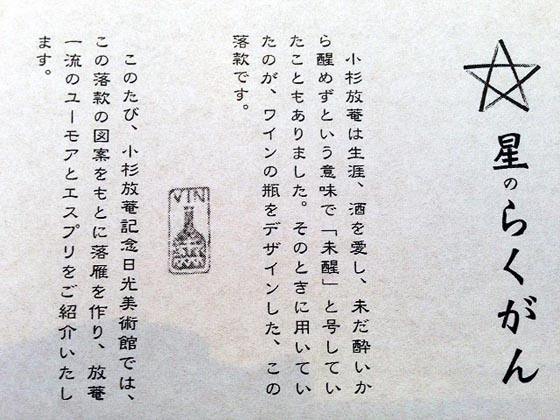 星のらくがん
小杉放菴は生涯、酒を愛し、未だ酔いか
ら醒めずという意味で「未醒」と号してい
たこともありました。そのときに用いてい
たのが、ワインの瓶をデザインした、この
落款です。
VIN
このたび、小杉放菴記念日光美術館では、
この落款の図案をもとに落雁を作り、放菴
一流のユーモアとエスプリをご紹介いたし
ます。